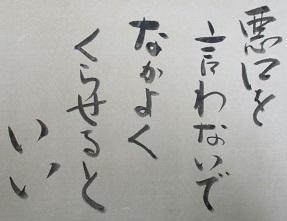 悪口を
言わないで
なかよく
くらせると
いい